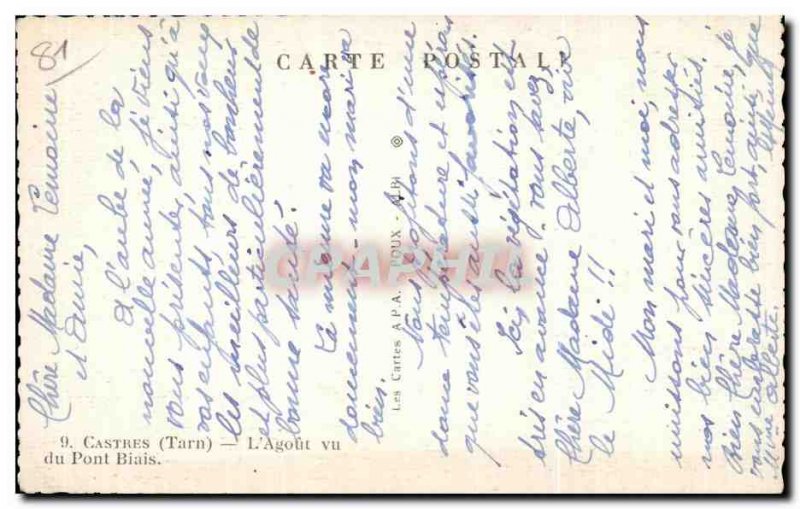 81
CARTE POSTALE
Chère Madame Lemoine
et Amie,
A l'aube de la
nouvelle année, je viens
vous présenter, ainsi qu'à
vos enfants tous nos vœux
les meilleurs de bonheur
et plus particulièrement de
bonne santé.
La mienne va
doucement - mon mari va
bien.
Nous profitons d'une
douce température et
que vous êtes aussi favorisés.
Ici la végétation est
très en avance, vous savez,
Chère Madame Alberte, vive
le Midi !!
Mon mari et moi, nous
unissons pour vous adresser
nos bien sincères amitiés.
bien Chère Madame Lemoine, je
vous embrasse bien fort, ainsi que
Mme Alberte.
Les Cartes A.P.A. POUX - ALBI
9. CASTRES (Tarn) — L'Agoût vu
du Pont Biais.
CPAPHIL